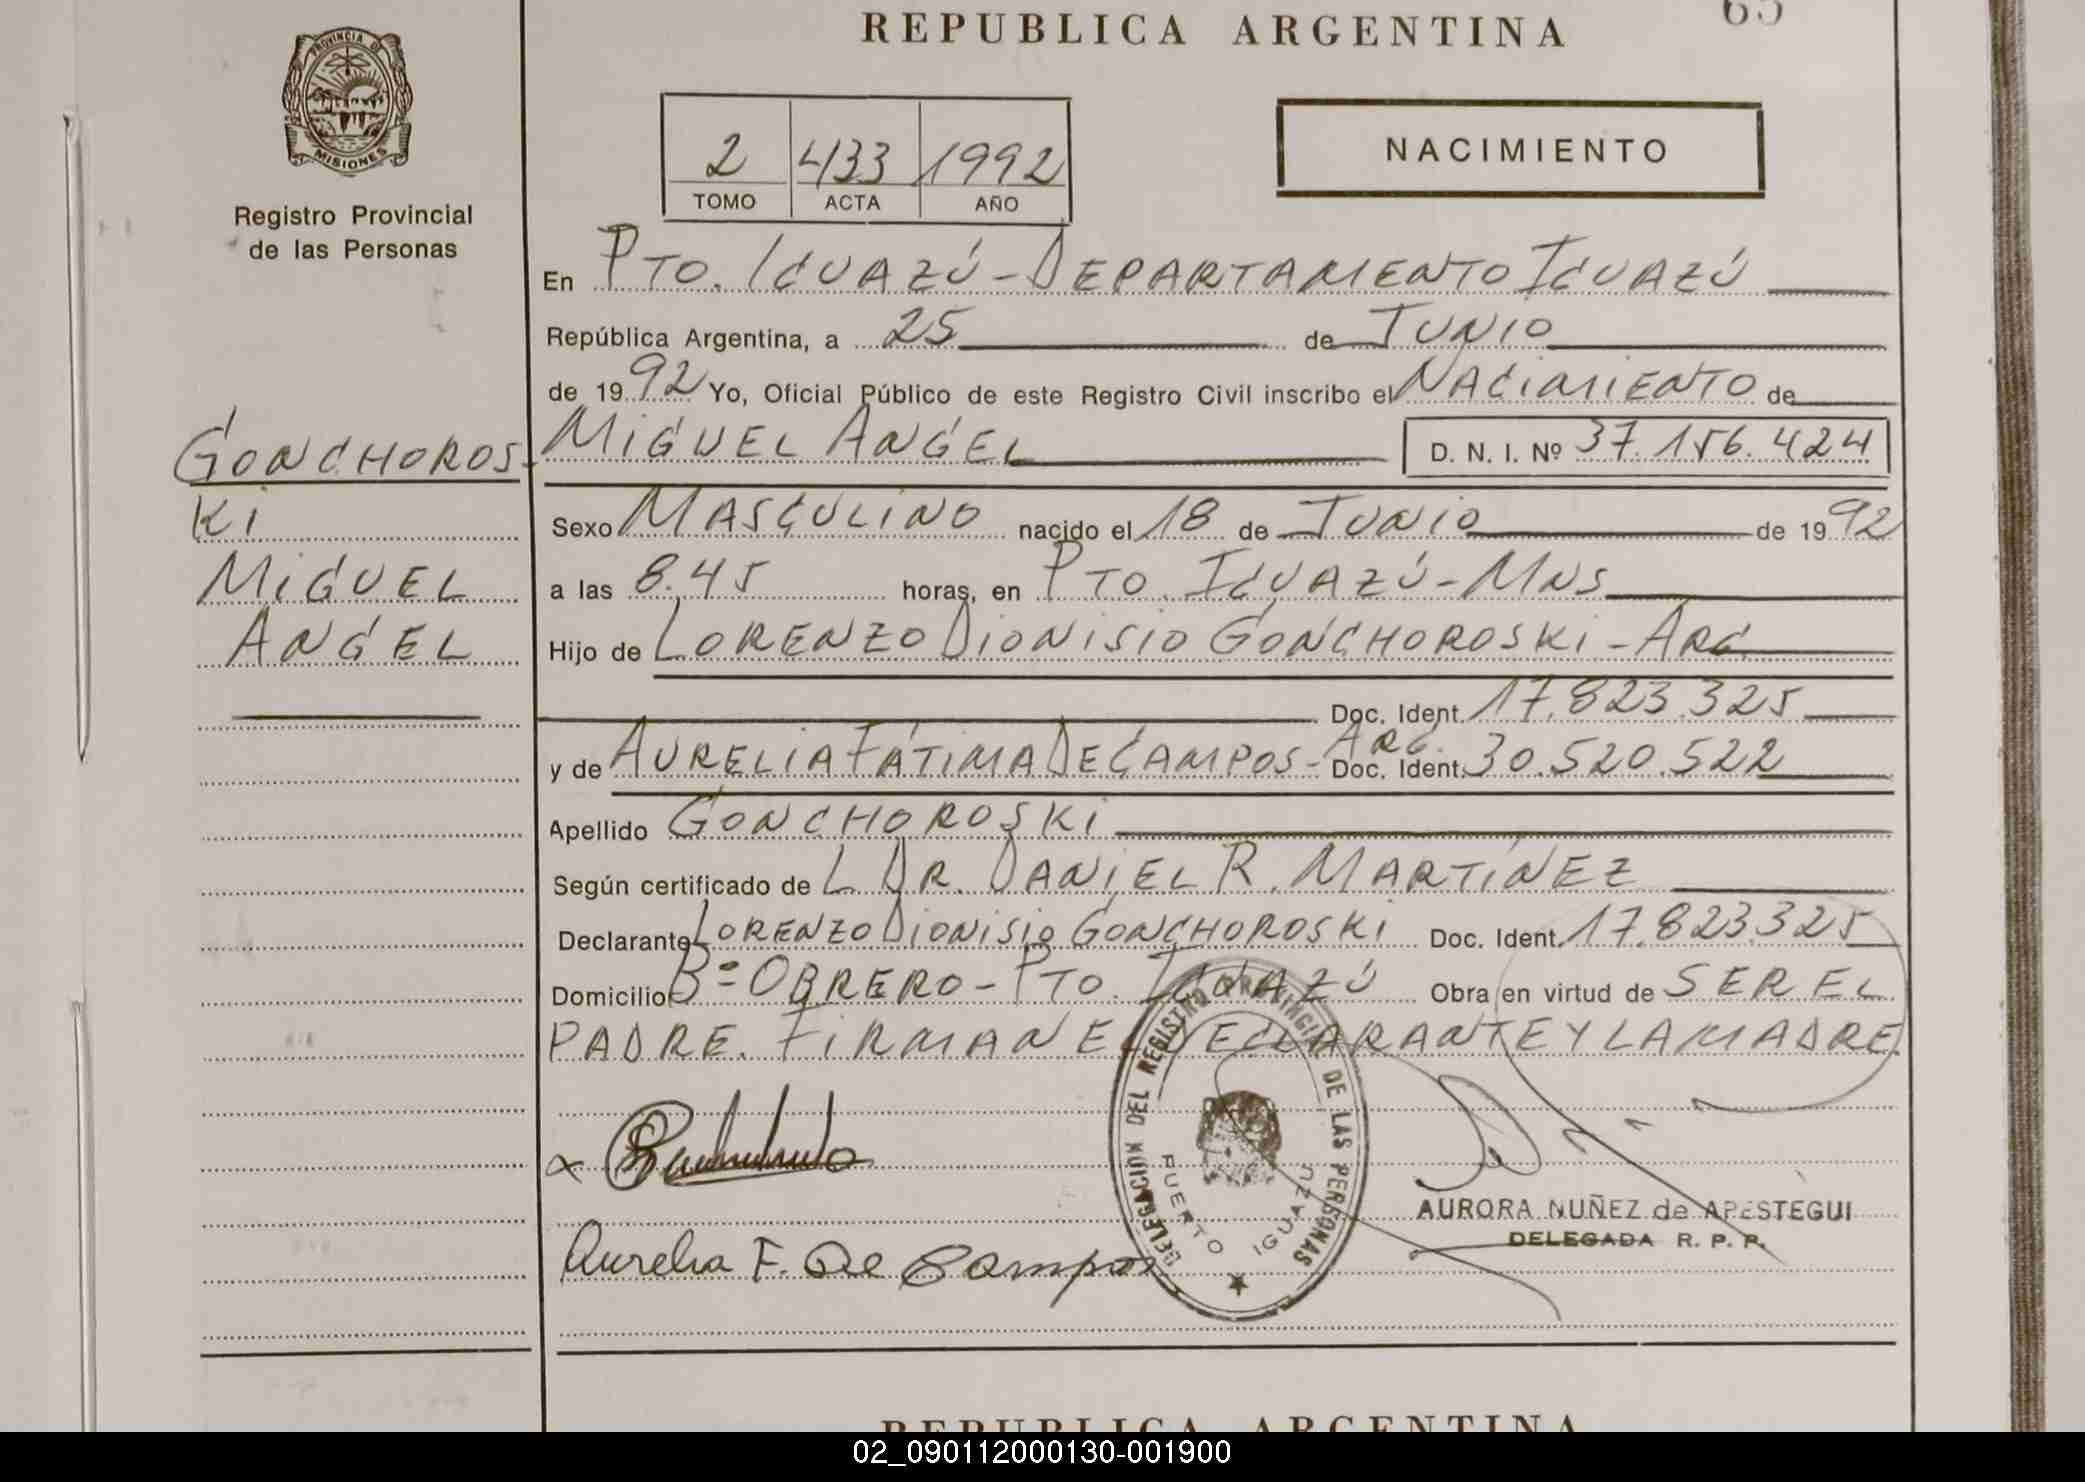 REPUBLICA ARGENTINA
65
PROVINCIA DE
MISIONES
Registro Provincial
de las Personas
2 433 1992
TOMO ACTA AÑO
NACIMIENTO
En PTO. IGUAZÚ - DEPARTAMENTO IGUAZÚ
República Argentina, a 25 de JUNIO
de 1992 Yo, Oficial Público de este Registro Civil inscribo el NACIMIENTO de
GONCHOROS-
KI
MIGUEL
ANGEL
MIGUEL ANGEL D. N. I. Nº 37.156.424
Sexo MASCULINO nacido el 18 de JUNIO de 1992
a las 8.45 horas, en PTO. IGUAZÚ - MNS
Hijo de LORENZO DIONISIO GONCHOROSKI - ARG
Doc. Ident. 17.823.325
y de AURELIA FÁTIMA DE CAMPOS - ARG. Doc. Ident. 30.520.522
Apellido GONCHOROSKI
Según certificado de L DR. DANIEL R. MARTÍNEZ
Declarante LORENZO DIONISIO GONCHOROSKI Doc. Ident. 17.823.325
Domicilio Bº OBRERO - PTO. IGUAZÚ Obra en virtud de SER EL
PADRE. FIRMAN EL DECLARANTE Y LA MADRE.
DELEGACION DEL REGISTRO PROVINCIAL DE LAS PERSONAS
PUERTO IGUAZU
Aurelia F. De Campos
AURORA NUÑEZ de APESTEGUI
DELEGADA R. P. P.
REPUBLICA ARGENTINA
02_090112000130-001900